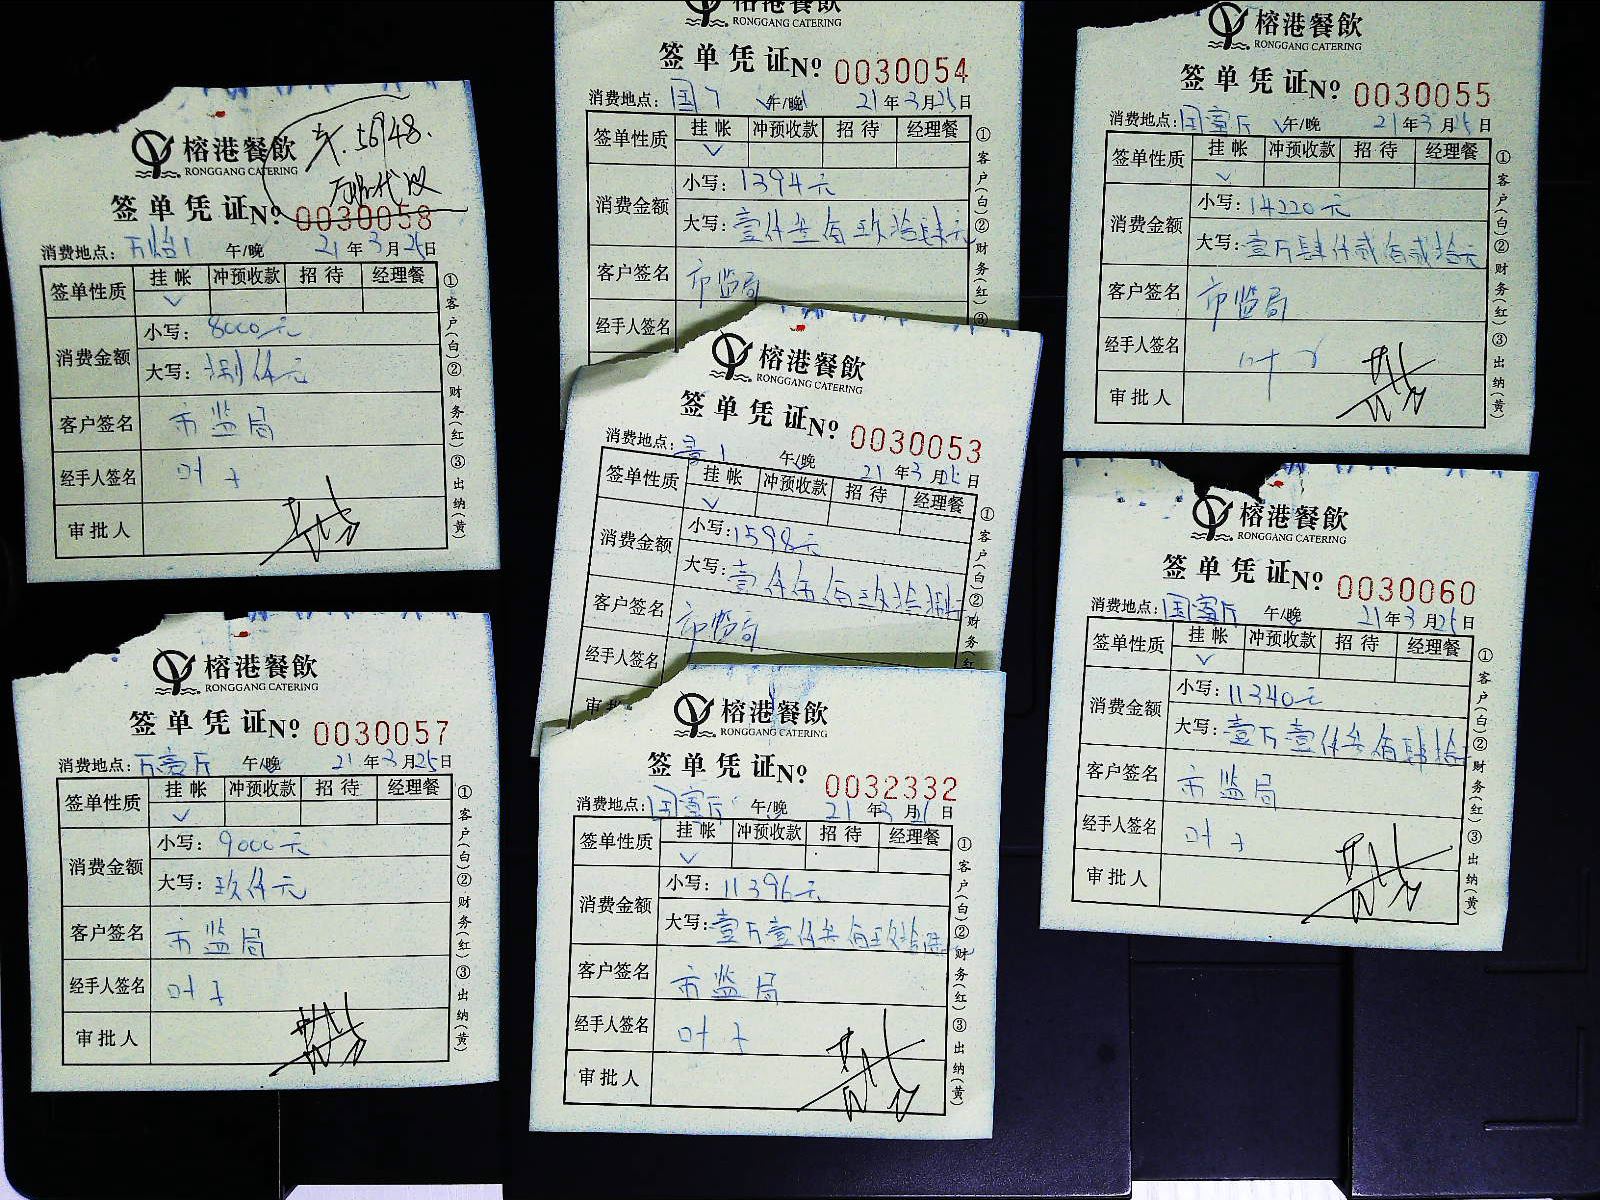 榕港餐飲
RONGGANG CATERING
共.56948.
签单凭证 Nº 0030058
消费地点：万怡1 午/晚 21年3月25日
签单性质 挂帐 冲预收款 招待 经理餐
✓
消费金额 小写：8000元
大写：捌仟元
客户签名 市监局
经手人签名 叶子
审批人
①客户(白)②财务(红)③出纳(黄)
RONGGANG CATERING
签单凭证 Nº 0030054
消费地点：国7 午/晚 21年3月25日
签单性质 挂帐 冲预收款 招待 经理餐
✓
消费金额 小写：1394元
大写：壹仟叁佰玖拾肆元
客户签名 市监局
经手人签名
①客户(白)②财务(红)③
榕港餐飲
RONGGANG CATERING
签单凭证 Nº 0030055
消费地点：国宴厅 午/晚 21年3月25日
签单性质 挂帐 冲预收款 招待 经理餐
✓
消费金额 小写：14220元
大写：壹万肆仟贰佰贰拾元
客户签名 市监局
经手人签名 叶子
审批人
①客户(白)②财务(红)③出纳(黄)
榕港餐飲
RONGGANG CATERING
签单凭证 Nº 0030053
消费地点： 午/晚 21年3月25日
签单性质 挂帐 冲预收款 招待 经理餐
✓
消费金额 小写：1598元
大写：壹仟伍佰玖拾捌
客户签名 市监局
经手人签名
审批
①客户(白)②财务(红)
榕港餐飲
RONGGANG CATERING
签单凭证 Nº 0030060
消费地点：国宴厅 午/晚 21年3月25日
签单性质 挂帐 冲预收款 招待 经理餐
✓
消费金额 小写：11340元
大写：壹万壹仟叁佰肆拾元
客户签名 市监局
经手人签名 叶子
审批人
①客户(白)②财务(红)③出纳(黄)
榕港餐飲
RONGGANG CATERING
签单凭证 Nº 0030057
消费地点：万豪厅 午/晚 21年3月25日
签单性质 挂帐 冲预收款 招待 经理餐
✓
消费金额 小写：9000元
大写：玖仟元
客户签名 市监局
经手人签名 叶子
审批人
①客户(白)②财务(红)③出纳(黄)
榕港餐飲
RONGGANG CATERING
签单凭证 Nº 0032332
消费地点：国宴厅 午/晚 21年3月 日
签单性质 挂帐 冲预收款 招待 经理餐
✓
消费金额 小写：11396元
大写：壹万壹仟叁佰玖拾陆元
客户签名 市监局
经手人签名 叶子
审批人
①客户(白)②财务(红)③出纳(黄)